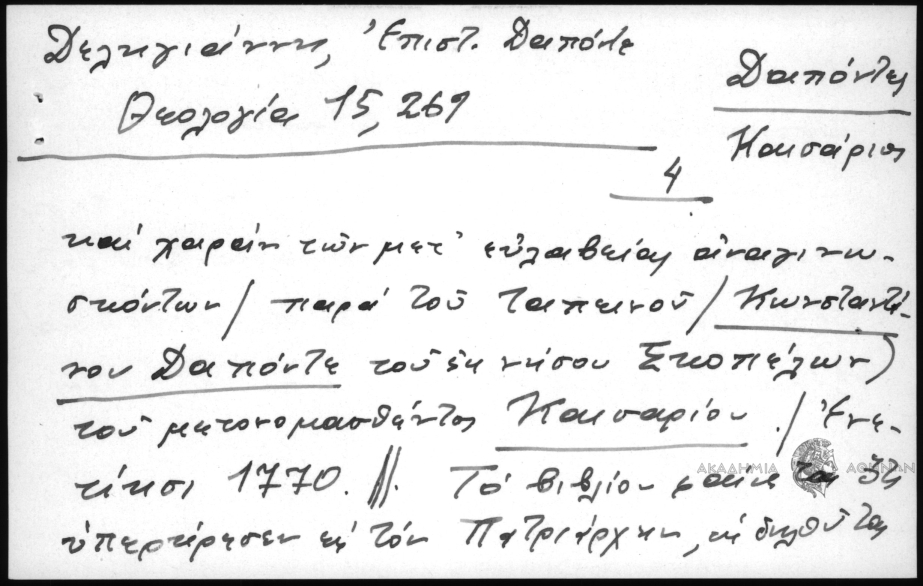 Δεληγιάννη, Ἐπιστ. Δαπόντε
Θεολογία 15, 269
Δαπόντες
Καισάριος
4
καί χαράν τῶν μετ' εὐλαβείας ἀναγινω-
σκόντων / παρά τοῦ ταπεινοῦ / Κωνσταντί-
νου Δαπόντε τοῦ ἐκ νήσου Σκοπέλων /
τοῦ μετονομασθέντος Καισαρίου ./ Ἐνε-
τίησι 1770. //. Τό βιβλίον
ΑΚΑΔΗΜΙΑ ΑΘΗΝΩΝ
εἰς τόν Πατριάρχην,